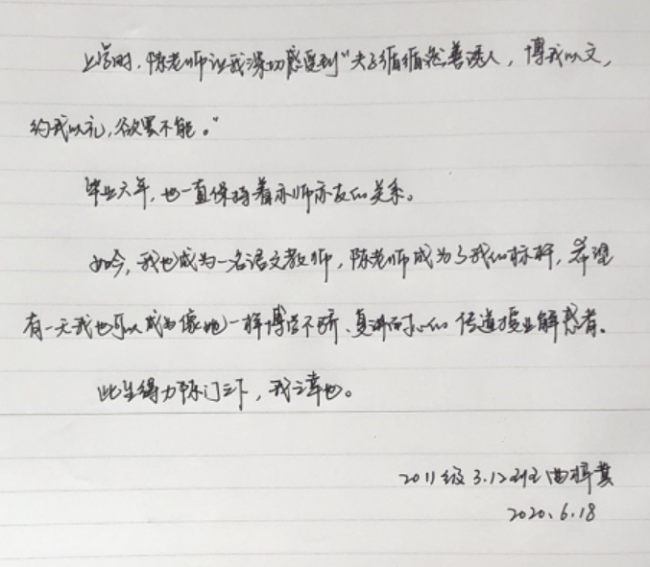 上学时,陈老师让我深切感受到“夫子循循然善诱人,博我以文,
约我以礼,欲罢不能。”
毕业六年,也一直保持着亦师亦友的关系。
如今,我也成为一名语文教师,陈老师成为了我的标杆,希望
有一天我也可以成为像她一样博学不骄、复讲耐心的传道授业解惑者。
此生得力陈门之下,我之幸也。
2011级3.12班 曲梓
2020.6.18